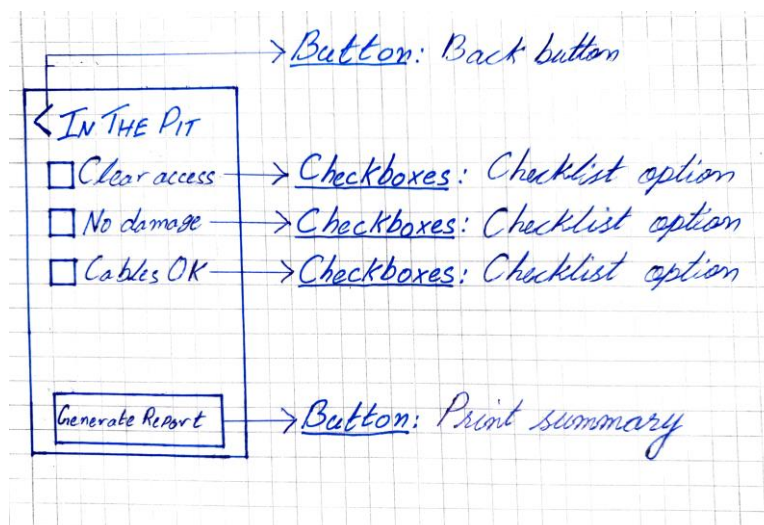 Button: Back button
IN THE PIT
Clear access Checkboxes: Checklist option
No damage Checkboxes: Checklist option
Cables OK Checkboxes: Checklist option
Generate Report Button: Print summary